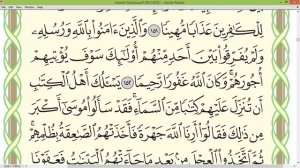 (SECURED) - Adobe Reader
لِلْكَٰفِرِينَ عَذَابًا مُّهِينًا ١٥١ وَٱلَّذِينَ ءَامَنُوا۟ بِٱللَّهِ وَرُسُلِهِۦ
وَلَمْ يُفَرِّقُوا۟ بَيْنَ أَحَدٍ مِّنْهُمْ أُو۟لَٰٓئِكَ سَوْفَ يُؤْتِيهِمْ
أُجُورَهُمْ ۗ وَكَانَ ٱللَّهُ غَفُورًا رَّحِيمًا ١٥٢ يَسْـَٔلُكَ أَهْلُ ٱلْكِتَٰبِ
أَن تُنَزِّلَ عَلَيْهِمْ كِتَٰبًا مِّنَ ٱلسَّمَآءِ ۚ فَقَدْ سَأَلُوا۟ مُوسَىٰٓ أَكْبَرَ
مِن ذَٰلِكَ فَقَالُوٓا۟ أَرِنَا ٱللَّهَ جَهْرَةً فَأَخَذَتْهُمُ ٱلصَّٰعِقَةُ بِظُلْمِهِمْ ۚ
ثُمَّ ٱتَّخَذُوا۟ ٱلْعِجْلَ مِنۢ بَعْدِ مَا جَآءَتْهُمُ ٱلْبَيِّنَٰتُ فَعَفَوْنَا